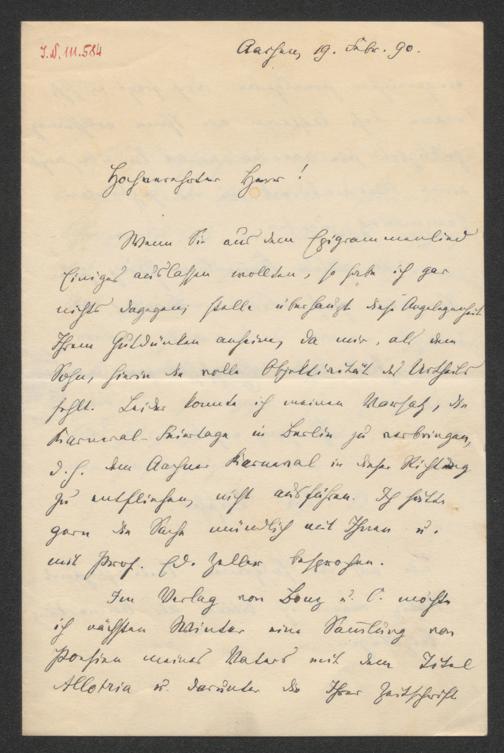 I.N. 111.584
Aachen, 19. Febr. 90.
Hochverehrter Herr!
Wenn Sie aus dem Epigrammenlied
Einiges auslassen wollten, so habe ich gar
nichts dagegen; stelle überhaupt diese Angelegenheit
Ihrem Gutdünken anheim, da mir, als dem
Sohn, hierin die volle Objektivität des Urtheils
fehlt. Leider konnte ich meinen Vorsatz, die
Karneval-Feiertage in Berlin zu verbringen,
d. h. dem Aachner Karneval in dieser Richtung
zu entfliehen, nicht ausführen. Ich hätte
gern die Sache mündlich mit Ihnen u.
mit Prof. Ed. Zeller besprochen.
Im Verlag von Bonz u. C. möchte
ich nächsten Winter eine Samlung von
Poesien meines Vaters mit dem Titel
Allotria u. darunter die Ihrer Zeitschrift